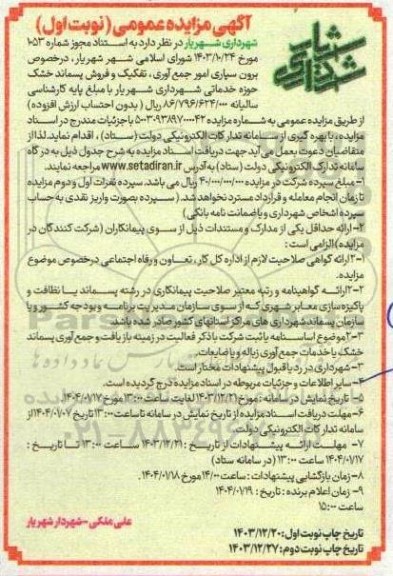 آگهی مزایده عمومی (نوبت اول)
شهرداری شهریار
شهرداری شهریار در نظر دارد به استناد مجوز شماره ۱۰۵۳
مورخ ۱۴۰۳/۱۰/۲۴ شورای اسلامی شهر شهریار، درخصوص
برون سپاری امور جمع آوری، تفکیک و فروش پسماند خشک
حوزه خدماتی شهرداری شهریار با مبلغ پایه کارشناسی
سالیانه ۸۶/۷۹۶/۶۲۴/۰۰۰ ریال (بدون احتساب ارزش افزوده)
از طریق مزایده عمومی به شماره مزایده ۵۰۰۳۰۹۳۸۹۷۰۰۰۰۴۲ با جزئیات مندرج در اسناد
مزایده، با بهره گیری از سامانه تدارکات الکترونیکی دولت (ستاد)، اقدام نماید. لذا از
متقاضیان دعوت بعمل می آید جهت دریافت اسناد مزایده به شرح جدول ذیل به درگاه
سامانه تدارک الکترونیکی دولت (ستاد) به آدرس www.setadiran.ir مراجعه نمایند.
۱- مبلغ سپرده شرکت در مزایده ۴۰/۰۰۰/۰۰۰/۰۰۰ ریال می باشد. سپرده نفرات اول و دوم مزایده
تا زمان انجام معامله و قرارداد مسترد نخواهد شد. (سپرده بصورت واریز نقدی به حساب
سپرده اشخاص شهرداری و یا ضمانت نامه بانکی)
۲- ارائه حداقل یکی از مدارک و مستندات ذیل از سوی پیمانکاران (شرکت کنندگان در
مزایده) الزامی است:
۲-۱ ارائه گواهی صلاحیت لازم از اداره کل کار، تعاون و رفاه اجتماعی درخصوص موضوع
مزایده.
۲-۲ ارائه گواهینامه و رتبه معتبر صلاحیت پیمانکاری در رشته پسماند یا نظافت و
پاکیزه سازی معابر شهری که از سوی سازمان مدیریت برنامه و بودجه کشور و یا
سازمان پسماند شهرداری های مراکز استانهای کشور صادر شده باشد.
۲-۳ موضوع اساسنامه یا ثبت شرکت با ذکر فعالیت در زمینه بازیافت و جمع آوری پسماند
خشک یا خدمات جمع آوری زباله و یا ضایعات.
۳- شهرداری در رد یا قبول پیشنهادات مختار است.
۴- سایر اطلاعات و جزئیات مربوطه در اسناد مزایده درج گردیده است.
۵- تاریخ نمایش در سامانه: مورخ ۱۴۰۳/۱۲/۲۱ لغایت ساعت ۱۳:۰۰ مورخ ۱۴۰۴/۰۱/۱۷.
۶- مهلت دریافت اسناد مزایده از تاریخ نمایش در سامانه تا ساعت ۱۳:۰۰ تاریخ ۱۴۰۴/۰۱/۰۷ از
سامانه تدارکات الکترونیکی دولت.
۷- مهلت ارائه پیشنهادات از تاریخ: ۱۴۰۳/۱۲/۲۱ ساعت ۱۳:۰۰ تا تاریخ:
۱۴۰۴/۰۱/۱۷ ساعت ۱۳:۰۰ (در سامانه ستاد)
۸- زمان بازگشایی پیشنهادات: ساعت ۱۴/۰۰ مورخ ۱۴۰۴/۰۱/۱۸.
۹- زمان اعلام برنده: تاریخ: ۱۴۰۴/۰۱/۱۹
ساعت ۱۵:۰۰
علی ملکی - شهردار شهریار
تاریخ چاپ نوبت اول: ۱۴۰۳/۱۲/۲۰
تاریخ چاپ نوبت دوم: ۱۴۰۳/۱۲/۲۷